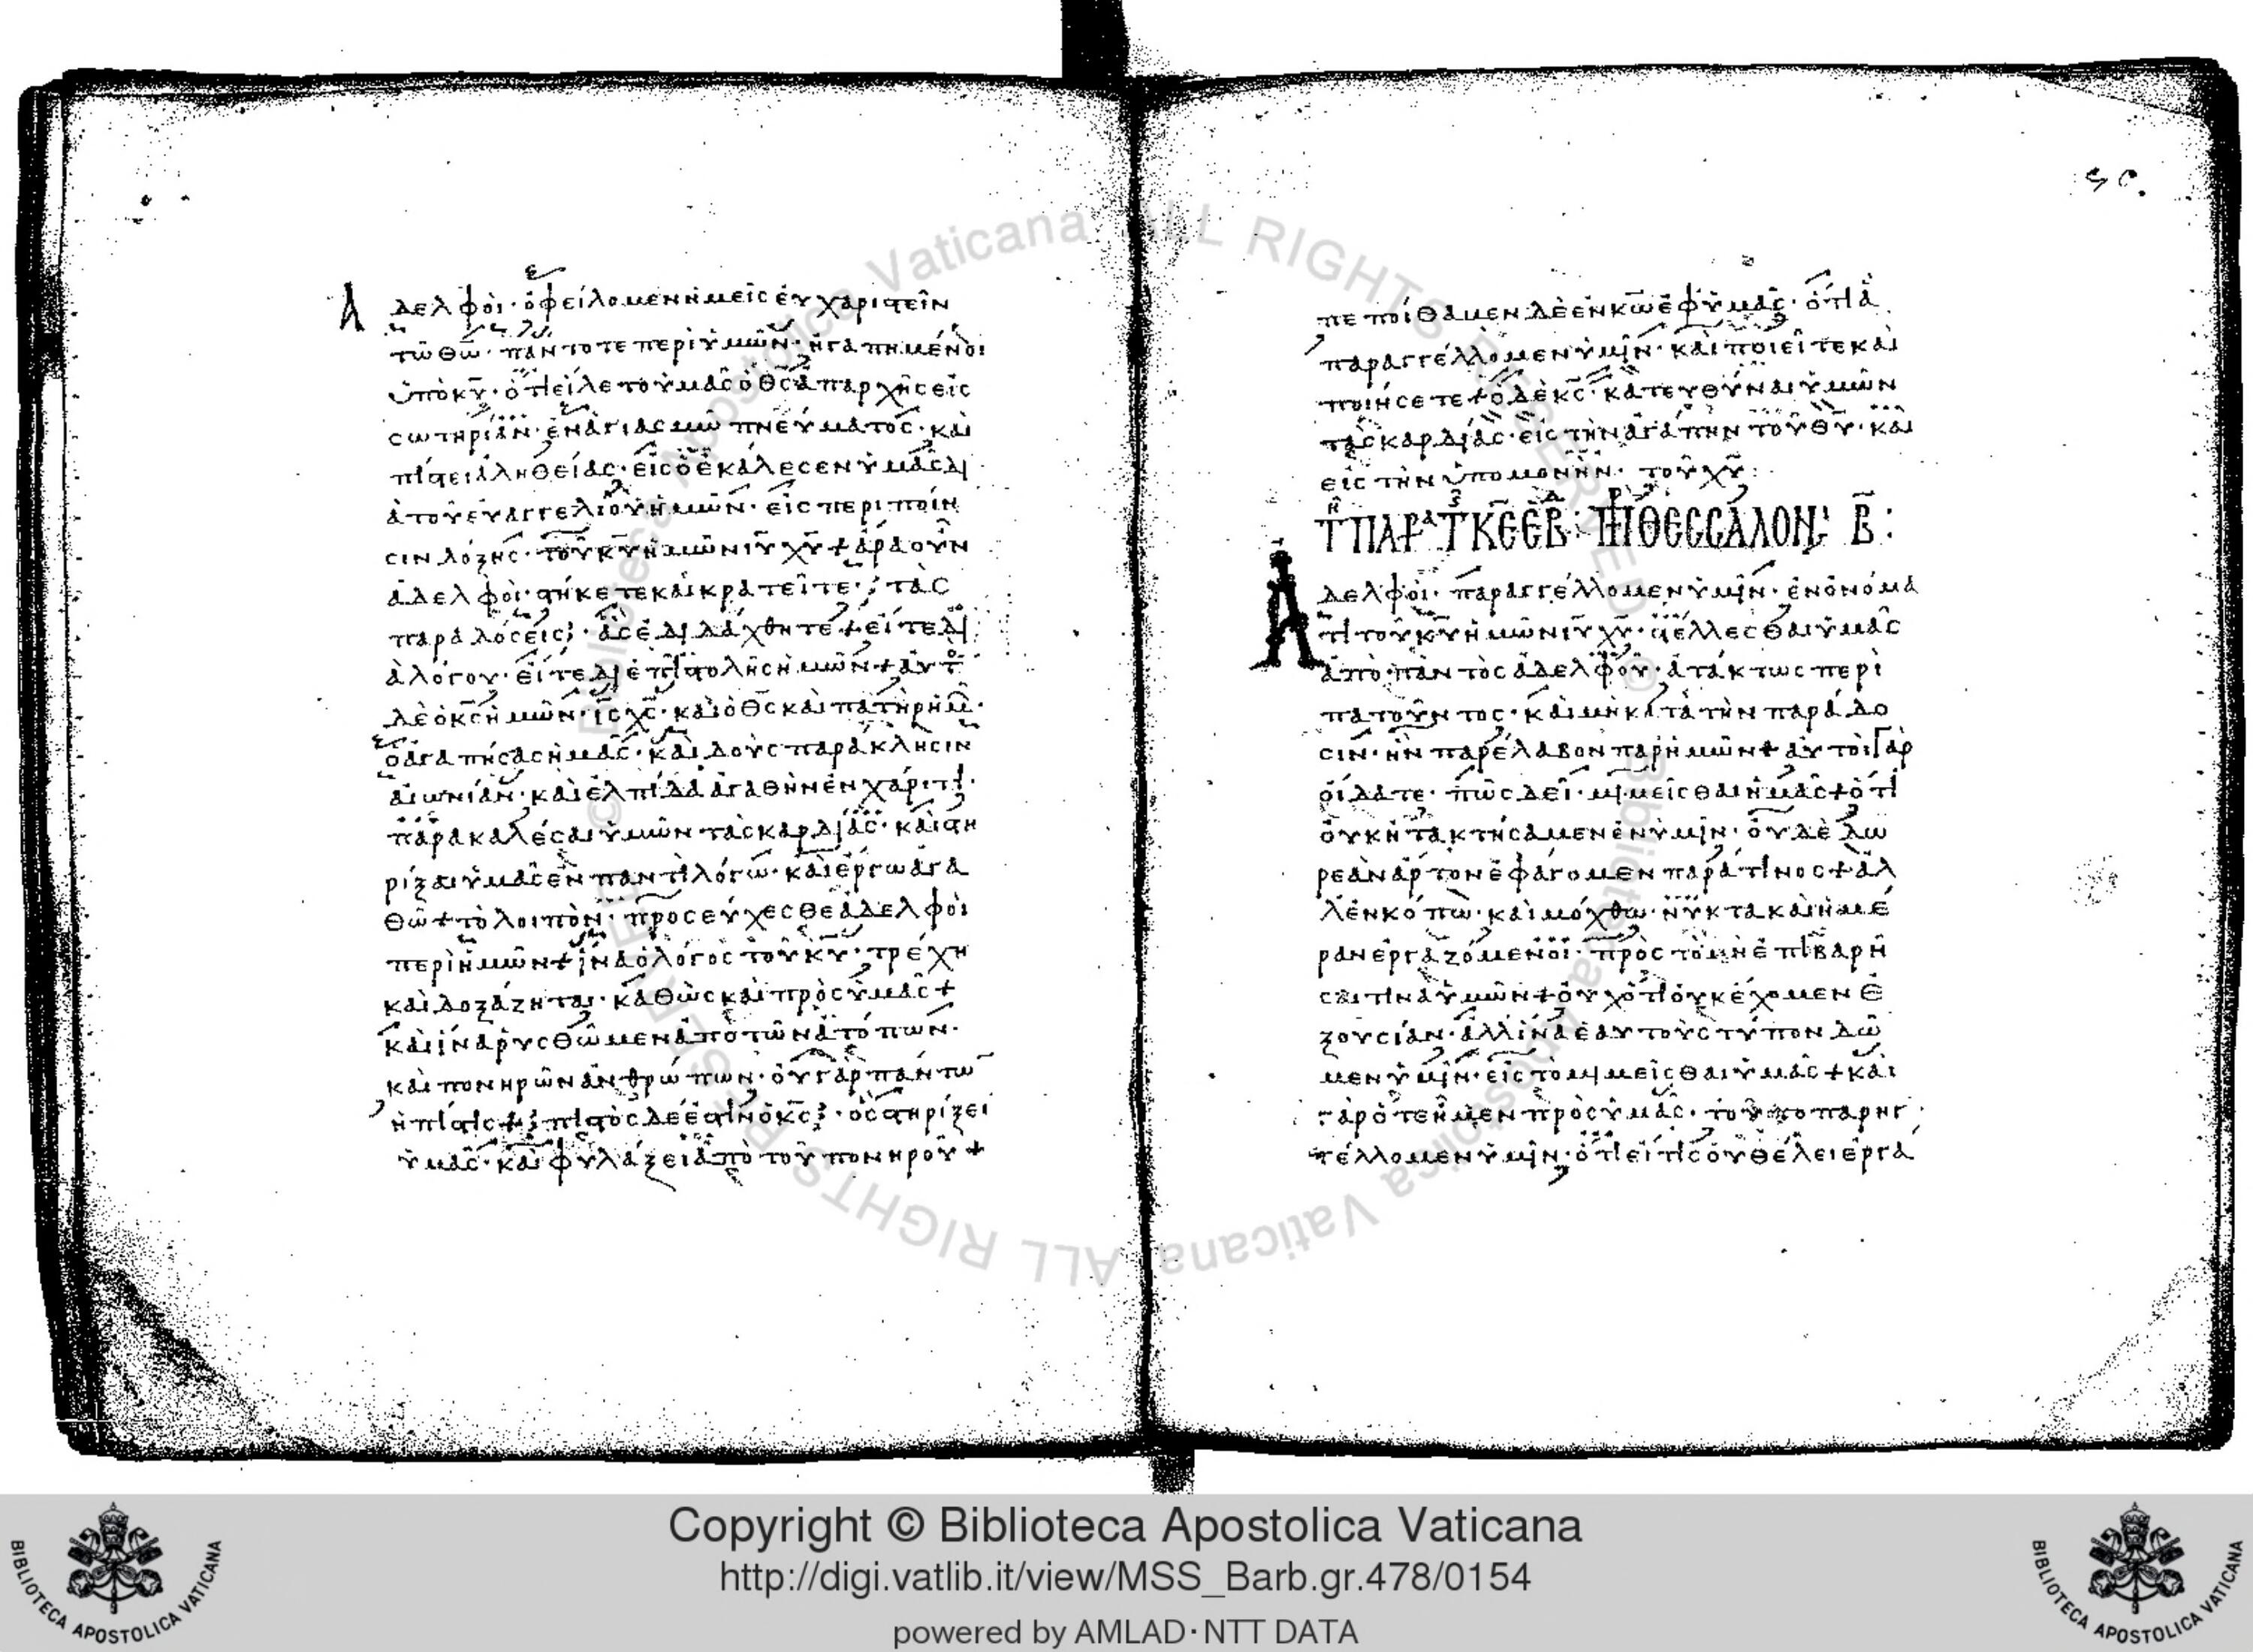 Ἀδελφοὶ· ὀφείλομεν ἡμεῖς εὐχαριστεῖν
τῶ θ̅ω̅· πάντοτε περὶ ὑμῶν· ἠγαπημένοι
ὑπὸ κ̅υ̅· ὅτι εἵλετο ὑμᾶς ὁ θ̅ς̅ ἀπαρχῆς εἰς
σωτηρίαν· ἐν ἁγιασμῶ πνεύματος· καὶ
πίστει ἀληθείας· εἰς ὃ ἐκάλεσεν ὑμᾶς δι
ὰ τοῦ εὐαγγελίου ἡμῶν· εἰς περιποίη
σιν δόξης· τοῦ κ̅υ̅ ἡμῶν ι̅υ̅ χ̅υ̅ + ἄρα οὖν
ἀδελφοὶ· στήκετε καὶ κρατεῖτε· τὰς
παραδόσεις· ἃς ἐδιδάχθητε + εἴτε δι
ὰ λόγου· εἴτε δι ἐπιστολῆς ἡμῶν + αὐτὸς
δὲ ὁ κ̅ς̅ ἡμῶν· ι̅ς̅ χ̅ς̅· καὶ ὁ θ̅ς̅ καὶ πατὴρ ἡμῶν·
ὁ ἀγαπήσας ἡμᾶς· καὶ δοὺς παράκλησιν
αἰωνίαν· καὶ ἐλπίδα ἀγαθὴν ἐν χάριτι·
παρακαλέσαι ὑμῶν τὰς καρδίας· καὶ στη
ρίξαι ὑμᾶς ἐν παντὶ λόγω· καὶ ἔργω ἀγα
θῶ + τὸ λοιπὸν· προσεύχεσθε ἀδελφοὶ
περὶ ἡμῶν + ἵνα ὁ λόγος τοῦ κ̅υ̅· τρέχη
καὶ δοξάζηται· καθὼς καὶ πρὸς ὑμᾶς +
καὶ ἵνα ῥυσθῶμεν ἀπο τῶν ἀτόπων·
καὶ πονηρῶν ἀνθρώπων· οὐ γὰρ πάντω
ἡ πίστις + πιστὸς δέ ἐστιν ὁ κ̅ς̅· ὃς στηρίξει
ὑμᾶς· καὶ φυλάξει ἀπὸ τοῦ πονηροῦ +
πεποίθαμεν δὲ ἐν κ̅ω̅ ἐφ ὑμᾶς· ὅτι ἃ
παραγγέλλομεν ὑμῖν· καὶ ποιεῖτε καὶ
ποιήσετε + ὁ δὲ κ̅ς̅· κατευθύναι ὑμῶν
τὰς καρδίας· εἰς τὴν ἀγάπην τοῦ θ̅υ̅· καὶ
εἰς τὴν ὑπομονὴν· τοῦ χ̅υ̅:
Τῆ παρα τ κ̅ε̅ ἑβδ: πρ θεσσαλον: β̅:
Ἀδελφοὶ· παραγγέλλομεν ὑμῖν· ἐν ὀνόμα
τι τοῦ κ̅υ̅ ἡμῶν ι̅υ̅ χ̅υ̅· στέλλεσθαι ὑμᾶς
ἀπὸ παντὸς ἀδελφοῦ· ἀτάκτως περι
πατοῦντος· καὶ μὴ κατὰ τὴν παράδο
σιν· ἣν παρέλαβον παρ ἡμῶν + αὐτοὶ γὰρ
οἴδατε· πῶς δεῖ· μιμεῖσθαι ἡμᾶς + ὅτι
οὐκ ἠτακτήσαμεν ἐν ὑμῖν· οὐδὲ δω
ρεὰν ἄρτον ἐφάγομεν παρά τινος + ἀλ
λ ἐν κόπω· καὶ μόχθω· νύκτα καὶ ἡμέ
ραν ἐργαζόμενοι· πρὸς τὸ μὴ ἐπιβαρῆ
σαι τινα ὑμῶν + οὐχ ὅτι οὐκ ἔχομεν ἐ
ξουσίαν· ἀλλ ἵνα ἑαυτοὺς τύπον δῶ
μεν ὑμῖν· εἰς το μιμεῖσθαι ὑμᾶς + καὶ
γὰρ ὅτε ἦμεν πρὸς ὑμᾶς· τοῦτο παρηγ
γέλλομεν ὑμῖν· ὅτι εἴ τις οὐ θέλει ἐργά
Copyright © Biblioteca Apostolica Vaticana
http://digi.vatlib.it/view/MSS_Barb.gr.478/0154
powered by AMLAD·NTT DATA